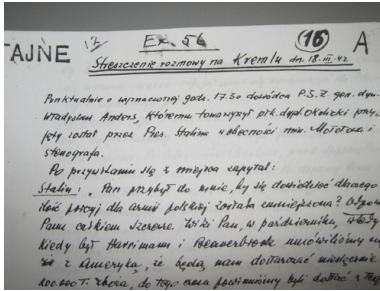 TAJNE
Ex. 56
16
A
Streszczenie rozmowy na Kremlu dn. 18.III.42
Punktualnie o wyznaczonej godz. 17.30 dowódca P.S.Z. gen. dyw.
Władysław Anders, któremu towarzyszył płk. dypl. Okulicki przy-
jęty został przez Prez. Stalina w obecności min. Mołotowa i
stenografa.
Po przywitaniu się z miejsca zapytał:
Stalin: Pan przybył do mnie, by się dowiedzieć dlaczego
ilość porcyj dla armii polskiej została zmniejszona? Odpowi
Panu całkiem szczerze. Widzi Pan, w październiku,
kiedy był Harriman i Beaverbrook umówiliśmy
się z Ameryką, że będą nam dostarczać miesięcznie
T. zboża, do tego czasu powinniśmy byli dostać z